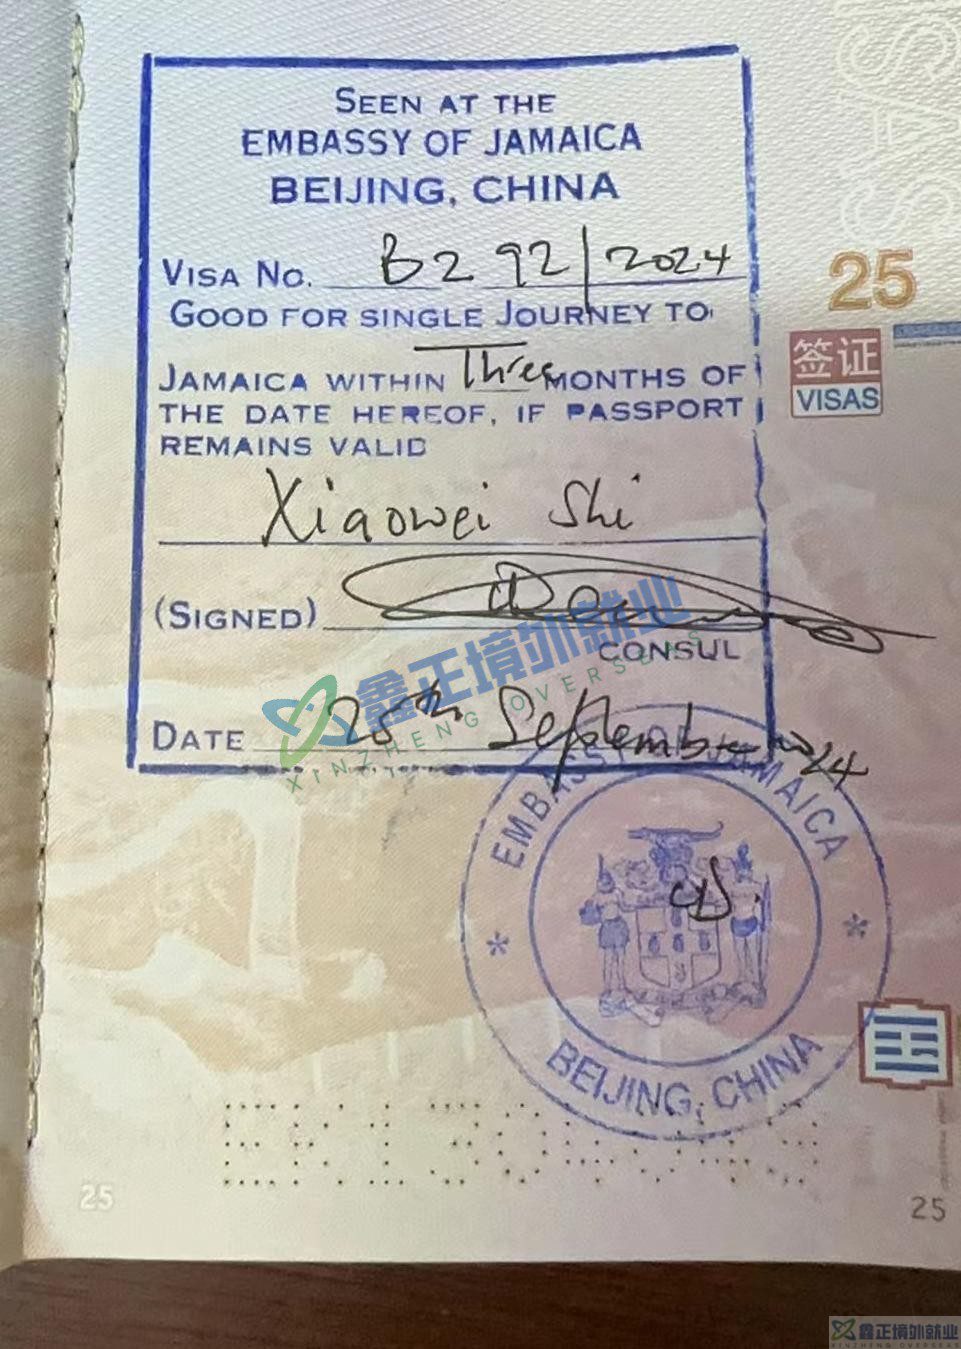 SEEN AT THE
EMBASSY OF JAMAICA
BEIJING, CHINA
VISA NO. B2 92/2024
GOOD FOR SINGLE JOURNEY TO
JAMAICA WITHIN Three MONTHS OF
THE DATE HEREOF, IF PASSPORT
REMAINS VALID
Xiaowei Shi
(SIGNED)
CONSUL
DATE 25th September 2024
25
签证
VISAS
鑫正境外就业
XINZHENG OVERSEAS
EMBASSY OF JAMAICA
BEIJING, CHINA
25
25
鑫正境外就业
XINZHENG OVERSEAS